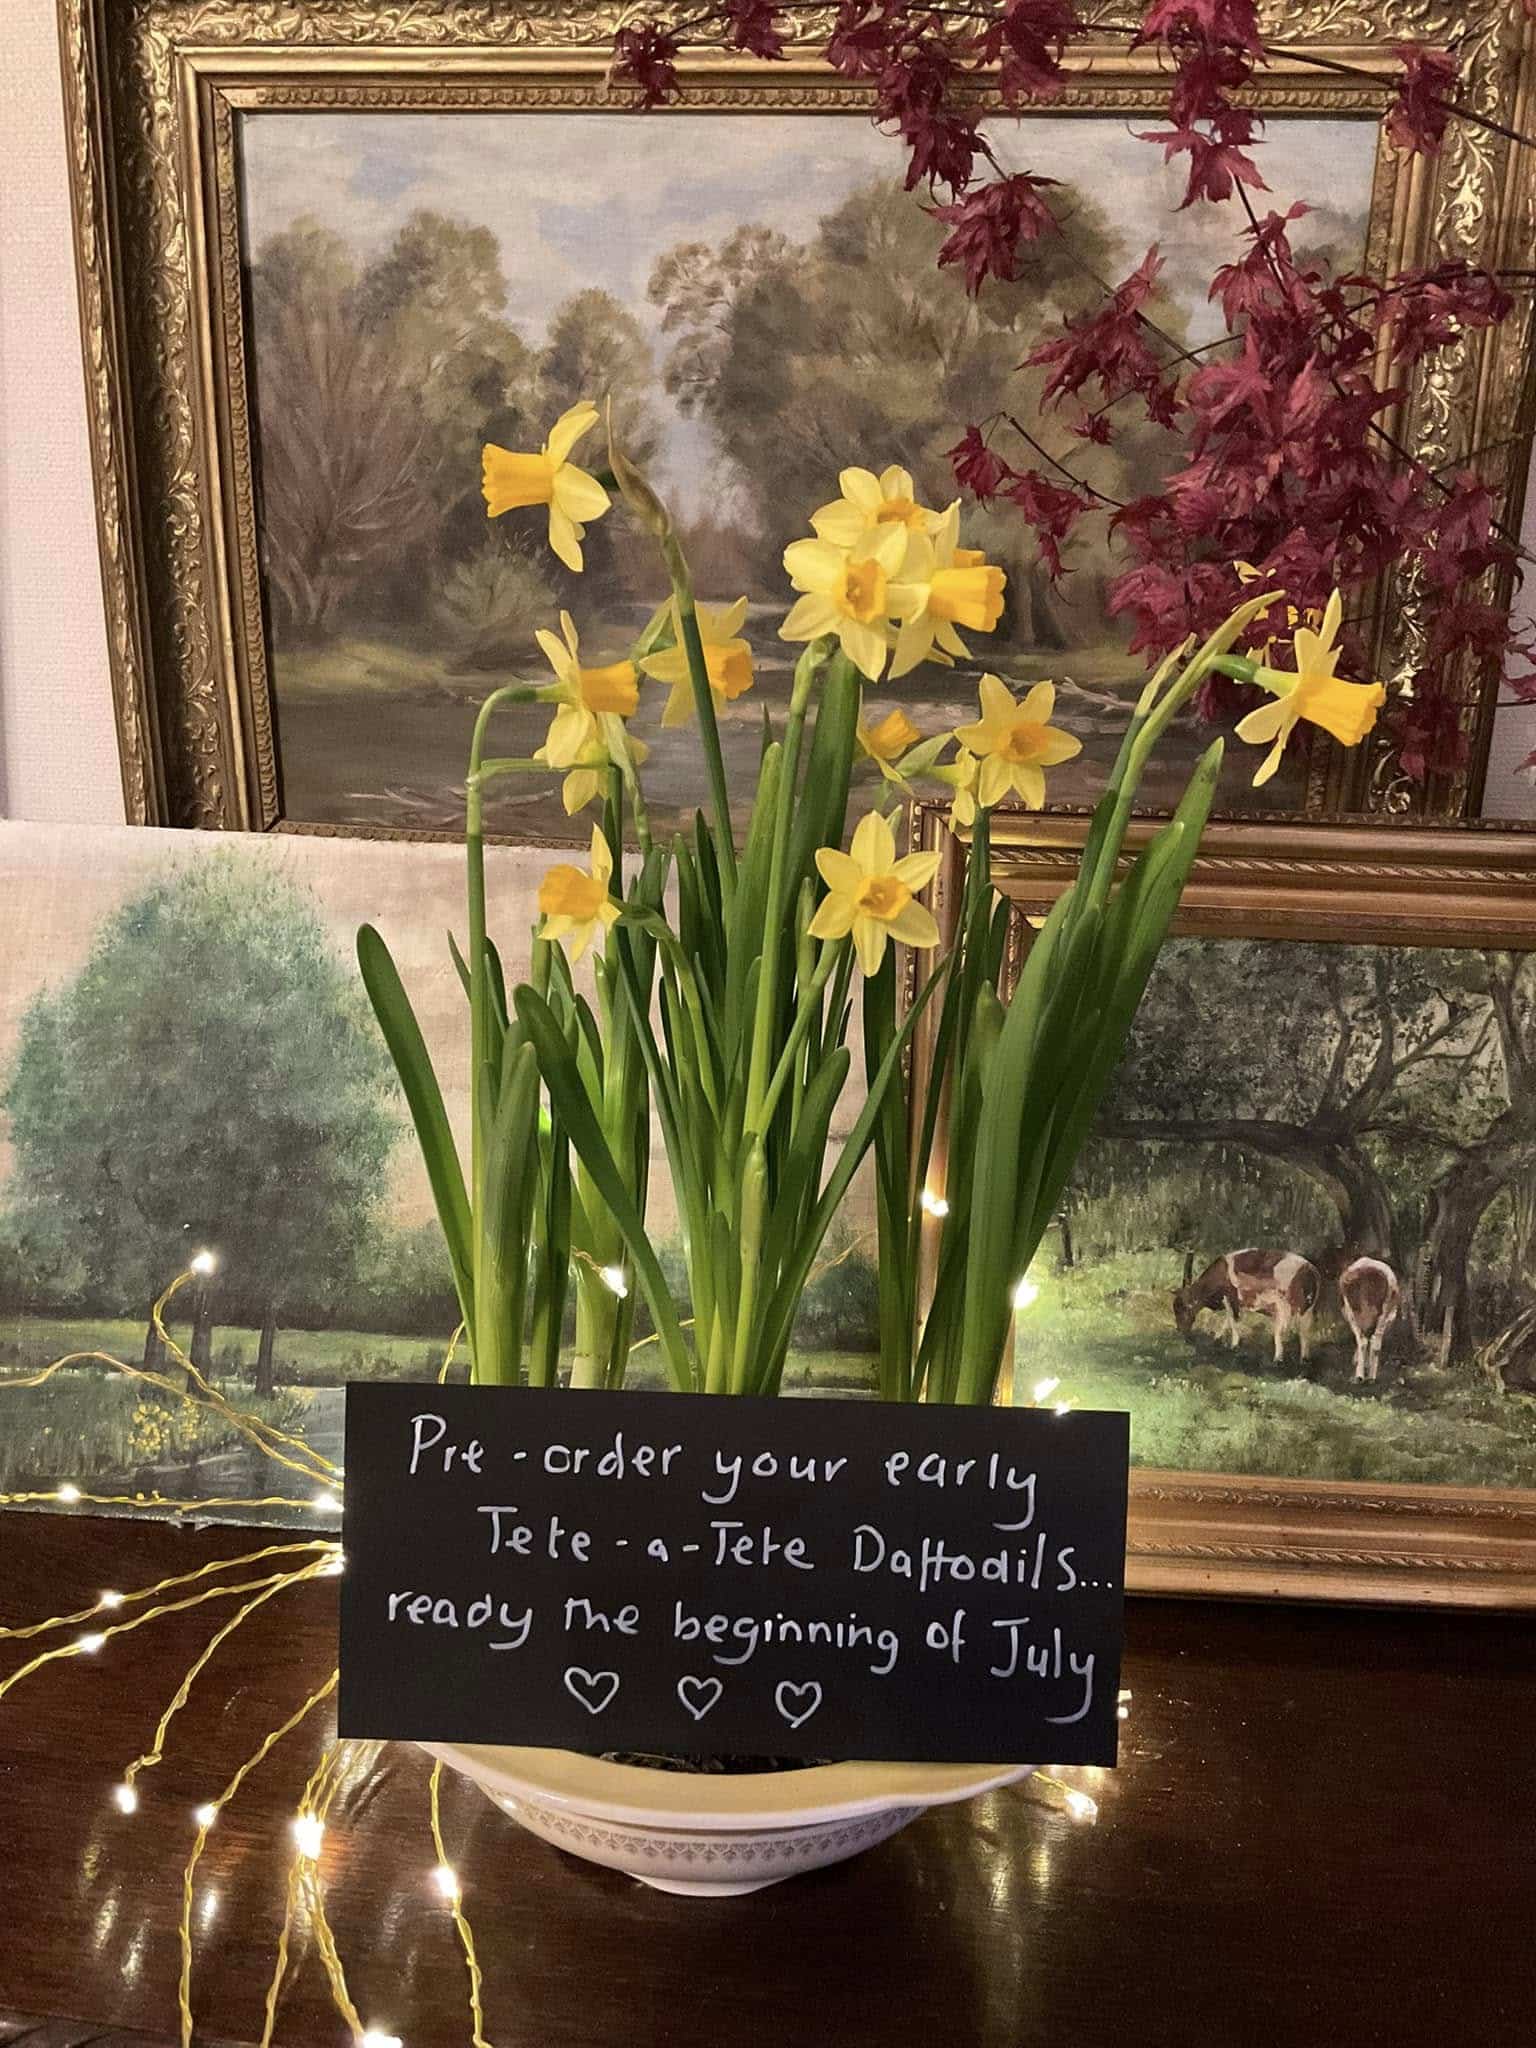 Pre-order your early
Tete-a-Tete Daffodils...
ready the beginning of July
♡ ♡ ♡